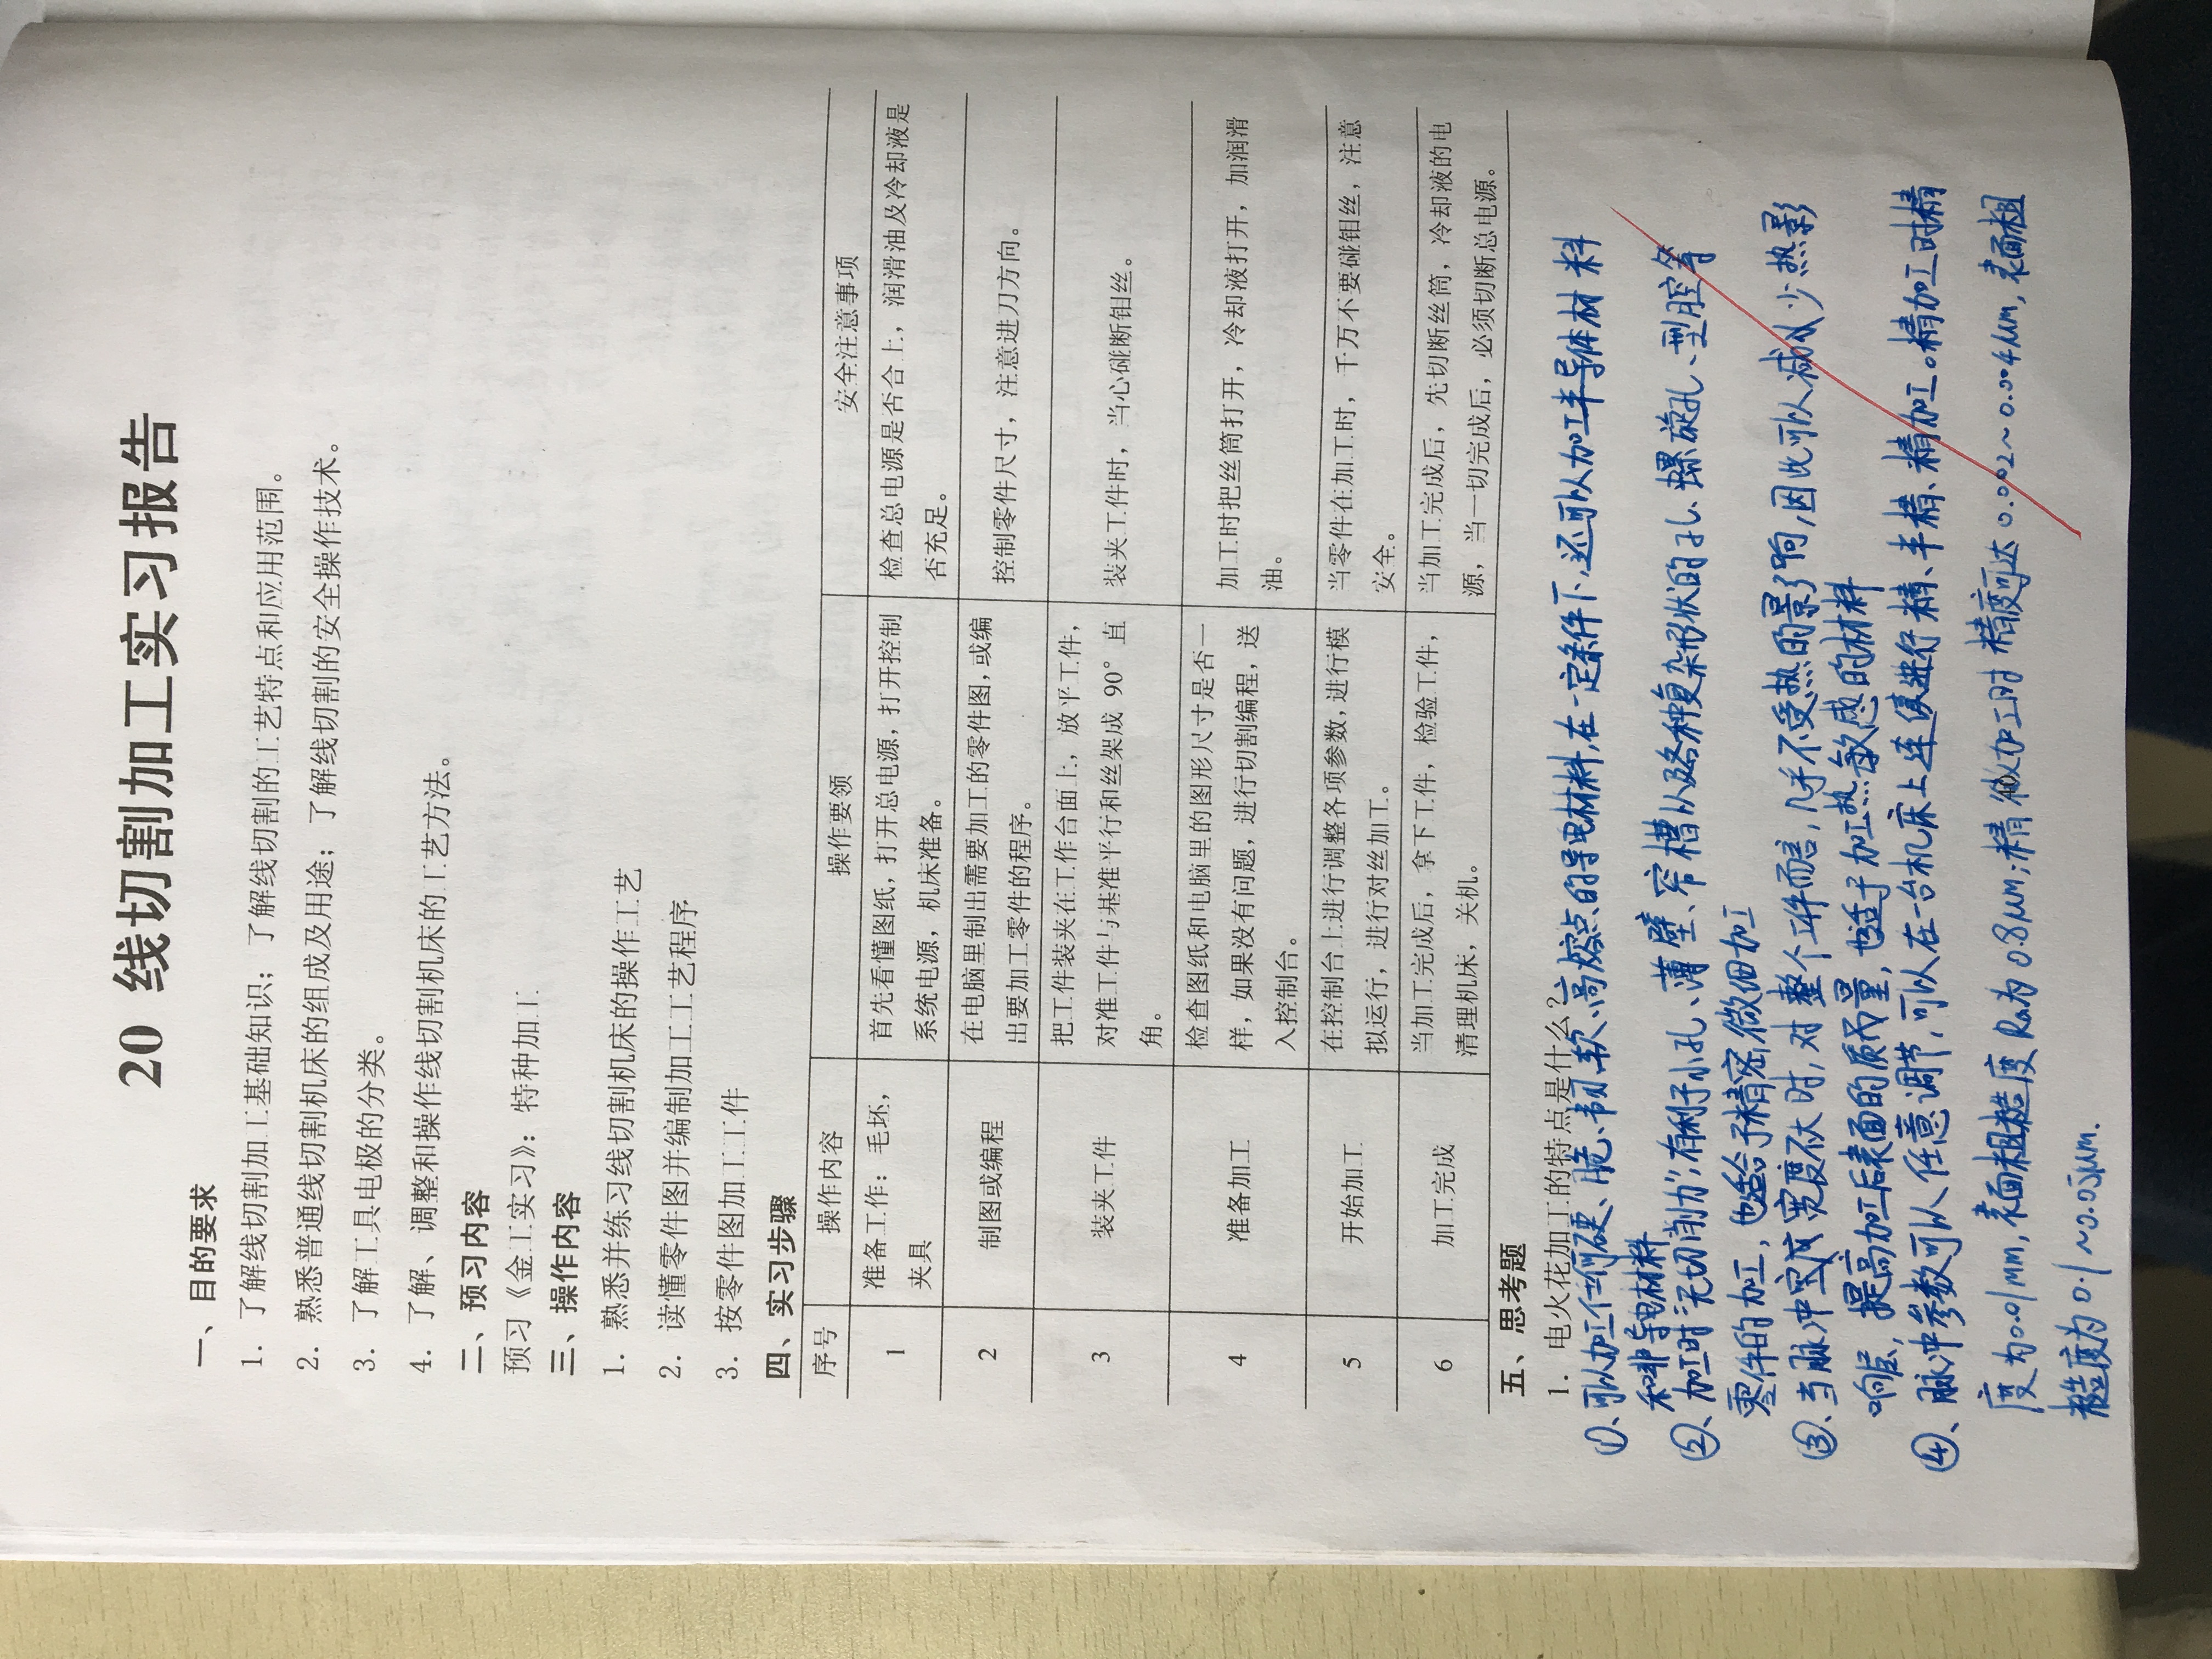 20 线切割加工实习报告
一、目的要求
1. 了解线切割加工基础知识；了解线切割的工艺特点和应用范围。
2. 熟悉普通线切割机床的组成及用途；了解线切割的安全操作技术。
3. 了解工具电极的分类。
4. 了解、调整和操作线切割机床的工艺方法。
二、预习内容
预习《金工实习》：特种加工
三、操作内容
1. 熟悉并练习线切割机床的操作工艺
2. 读懂零件图并编制加工工艺程序
3. 按零件图加工工件
四、实习步骤
序号 操作内容 操作要领 安全注意事项
1
准备工作：毛坯，
夹具
首先看懂图纸，打开总电源，打开控制
系统电源，机床准备。
检查总电源是否合上，润滑油及冷却液是
否充足。
2
制图或编程
在电脑里制出需要加工的零件图，或编
出要加工零件的程序。
控制零件尺寸，注意进刀方向。
3
装夹工件
把工件装夹在工作台面上，放平工件，
对准工件与基准平行和丝架成 90° 直
角。
装夹工件时，当心碰断钼丝。
4
准备加工
检查图纸和电脑里的图形尺寸是否一
样，如果没有问题，进行切割编程，送
入控制台。
加工时把丝筒打开，冷却液打开，加润滑
油。
5
开始加工
在控制台上进行调整各项参数，进行模
拟运行，进行对丝加工。
当零件在加工时，千万不要碰钼丝，注意
安全。
6
加工完成
当加工完成后，拿下工件，检验工件，
清理机床，关机。
当加工完成后，先切断丝筒，冷却液的电
源，当一切完成后，必须切断总电源。
五、思考题
1. 电火花加工的特点是什么？
①、可以加工任何硬、脆、韧、软、高熔点的导电材料，在一定条件下，还可以加工半导体材料
和非导电材料
②、加工时"无切削力"，有利于小孔、薄壁、窄槽以及各种复杂形状的孔、螺旋孔、型腔等
零件的加工，也适合于精密微细加工
③、当脉冲宽度宽度不大时，对整个工件而言，几乎不受热的影响，因此可以减少热影
响层，提高加工后表面的质量，也适于加工热敏感的材料
④、脉冲参数可以任意调节，可以在一台机床上连续进行精、半精、精加工。精加工时精
度为0.01mm，表面粗糙度Ra为0.8μm；精微加工时精度可达0.002~0.004μm，表面粗
糙度为0.1~0.05μm.
40